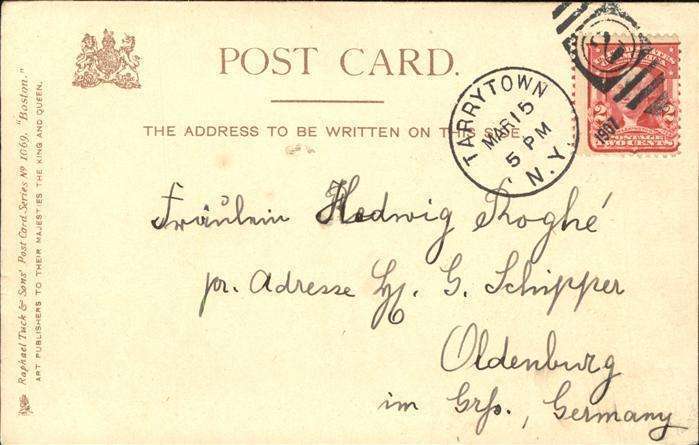 POST CARD.
THE ADDRESS TO BE WRITTEN ON THIS SIDE.
TARRYTOWN
MAR 15
5 PM
N.Y.
1907
2 2
POSTAGE
TWO CENTS
Fräulein Hedwig Roghé
pr. Adresse G. Schipper
Oldenburg
im Grh., Germany
Raphael Tuck & Sons' Post Card Series No 1069, "Boston."
ART PUBLISHERS TO THEIR MAJESTIES THE KING AND QUEEN.